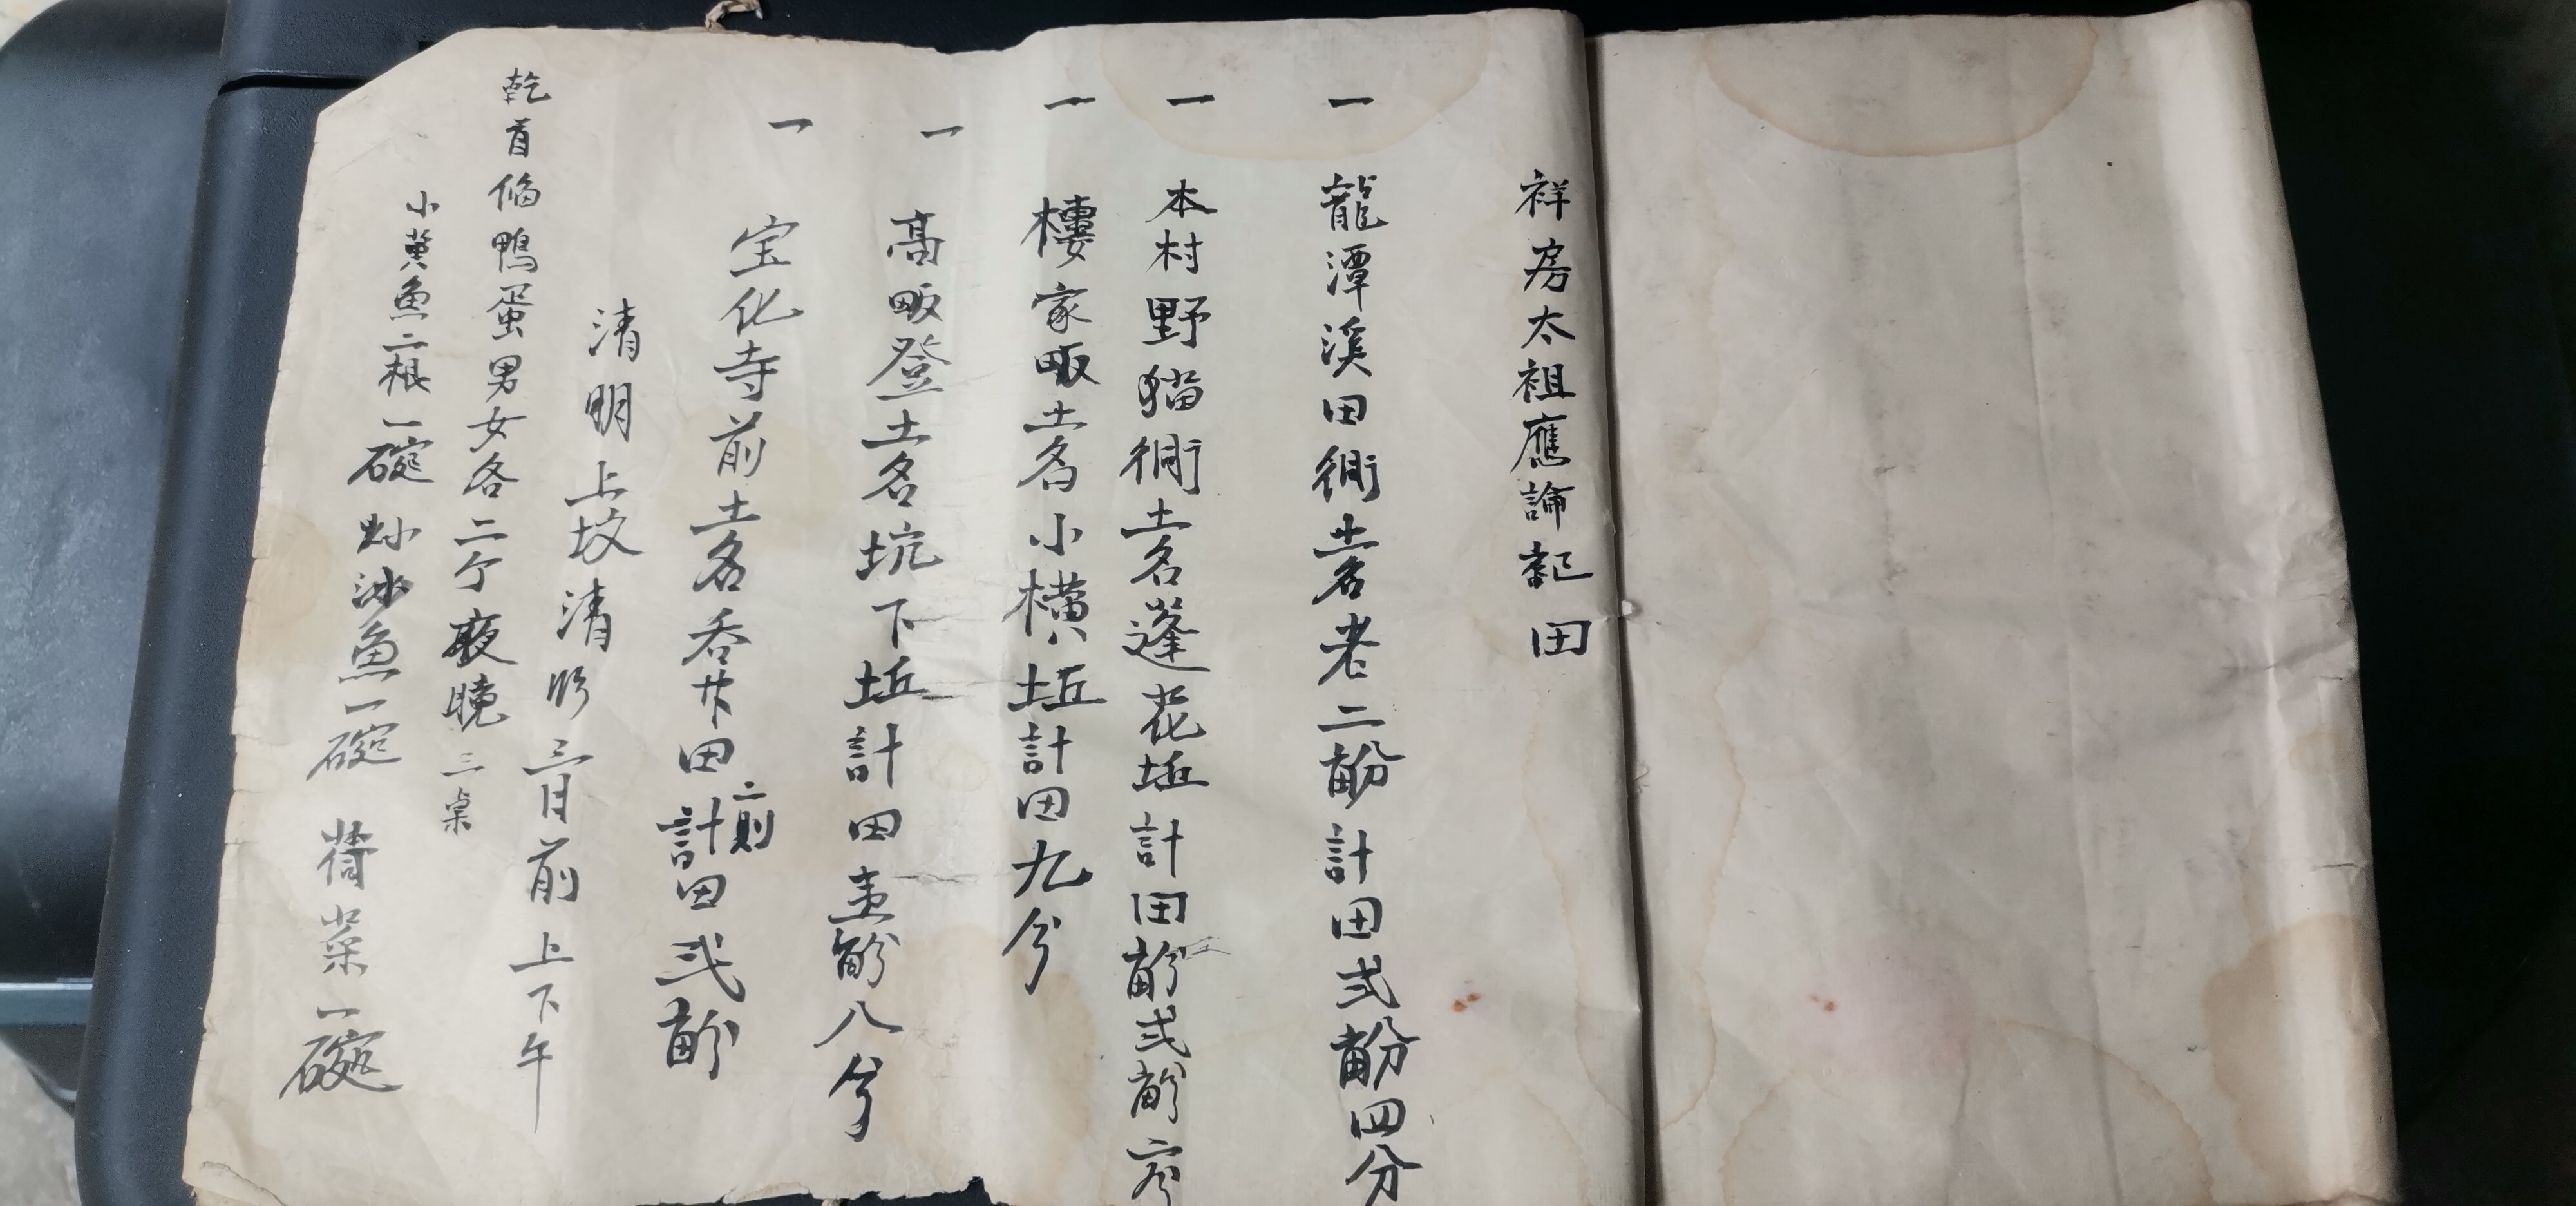 祥房太祖應論記田
一 龍潭溪田衕土名老二畝計田弍畝四分
一 本村野猫衕土名蓬花坵計田畝弍畝
一 樓家畈土名小橫坵計田九分
一 高畈登土名坑下坵計田壹畝八分
一 宝化寺前土名吞廿田二則計田弍畝
清明上坟清明三月前上下午
乾首 鴨蛋男女各二个 晚三桌
小黄魚二根一碗 炒沙魚一碗 菜一碗